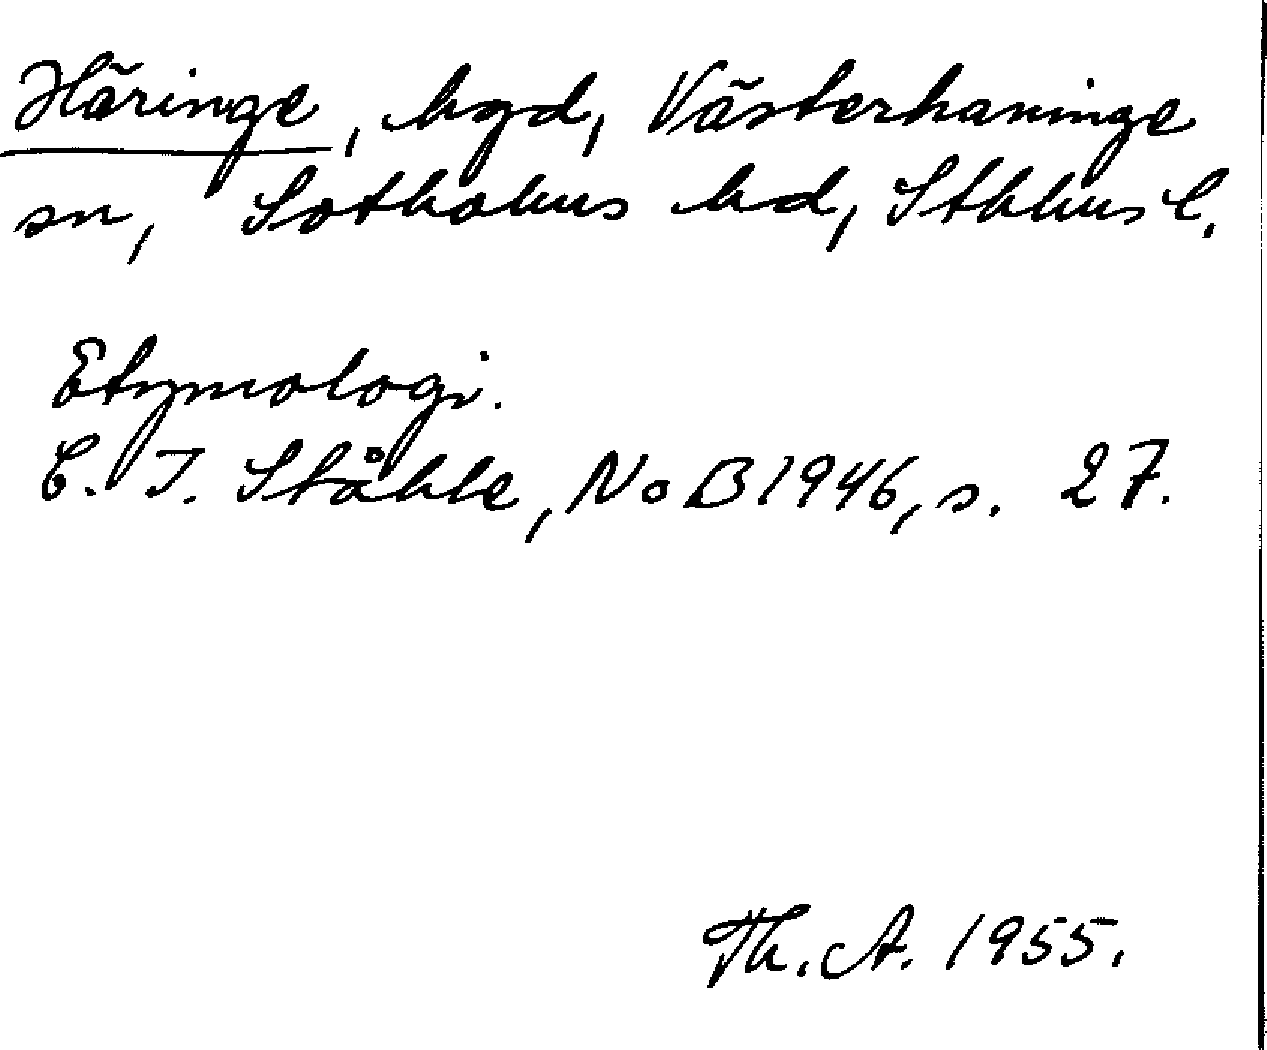 Häringe, hgd, Västerhaninge
sn, Sotholms hd, Sthlms l.
Etymologi.
C. I. Ståhle, NoB 1946, s. 27.
Th. A. 1955.